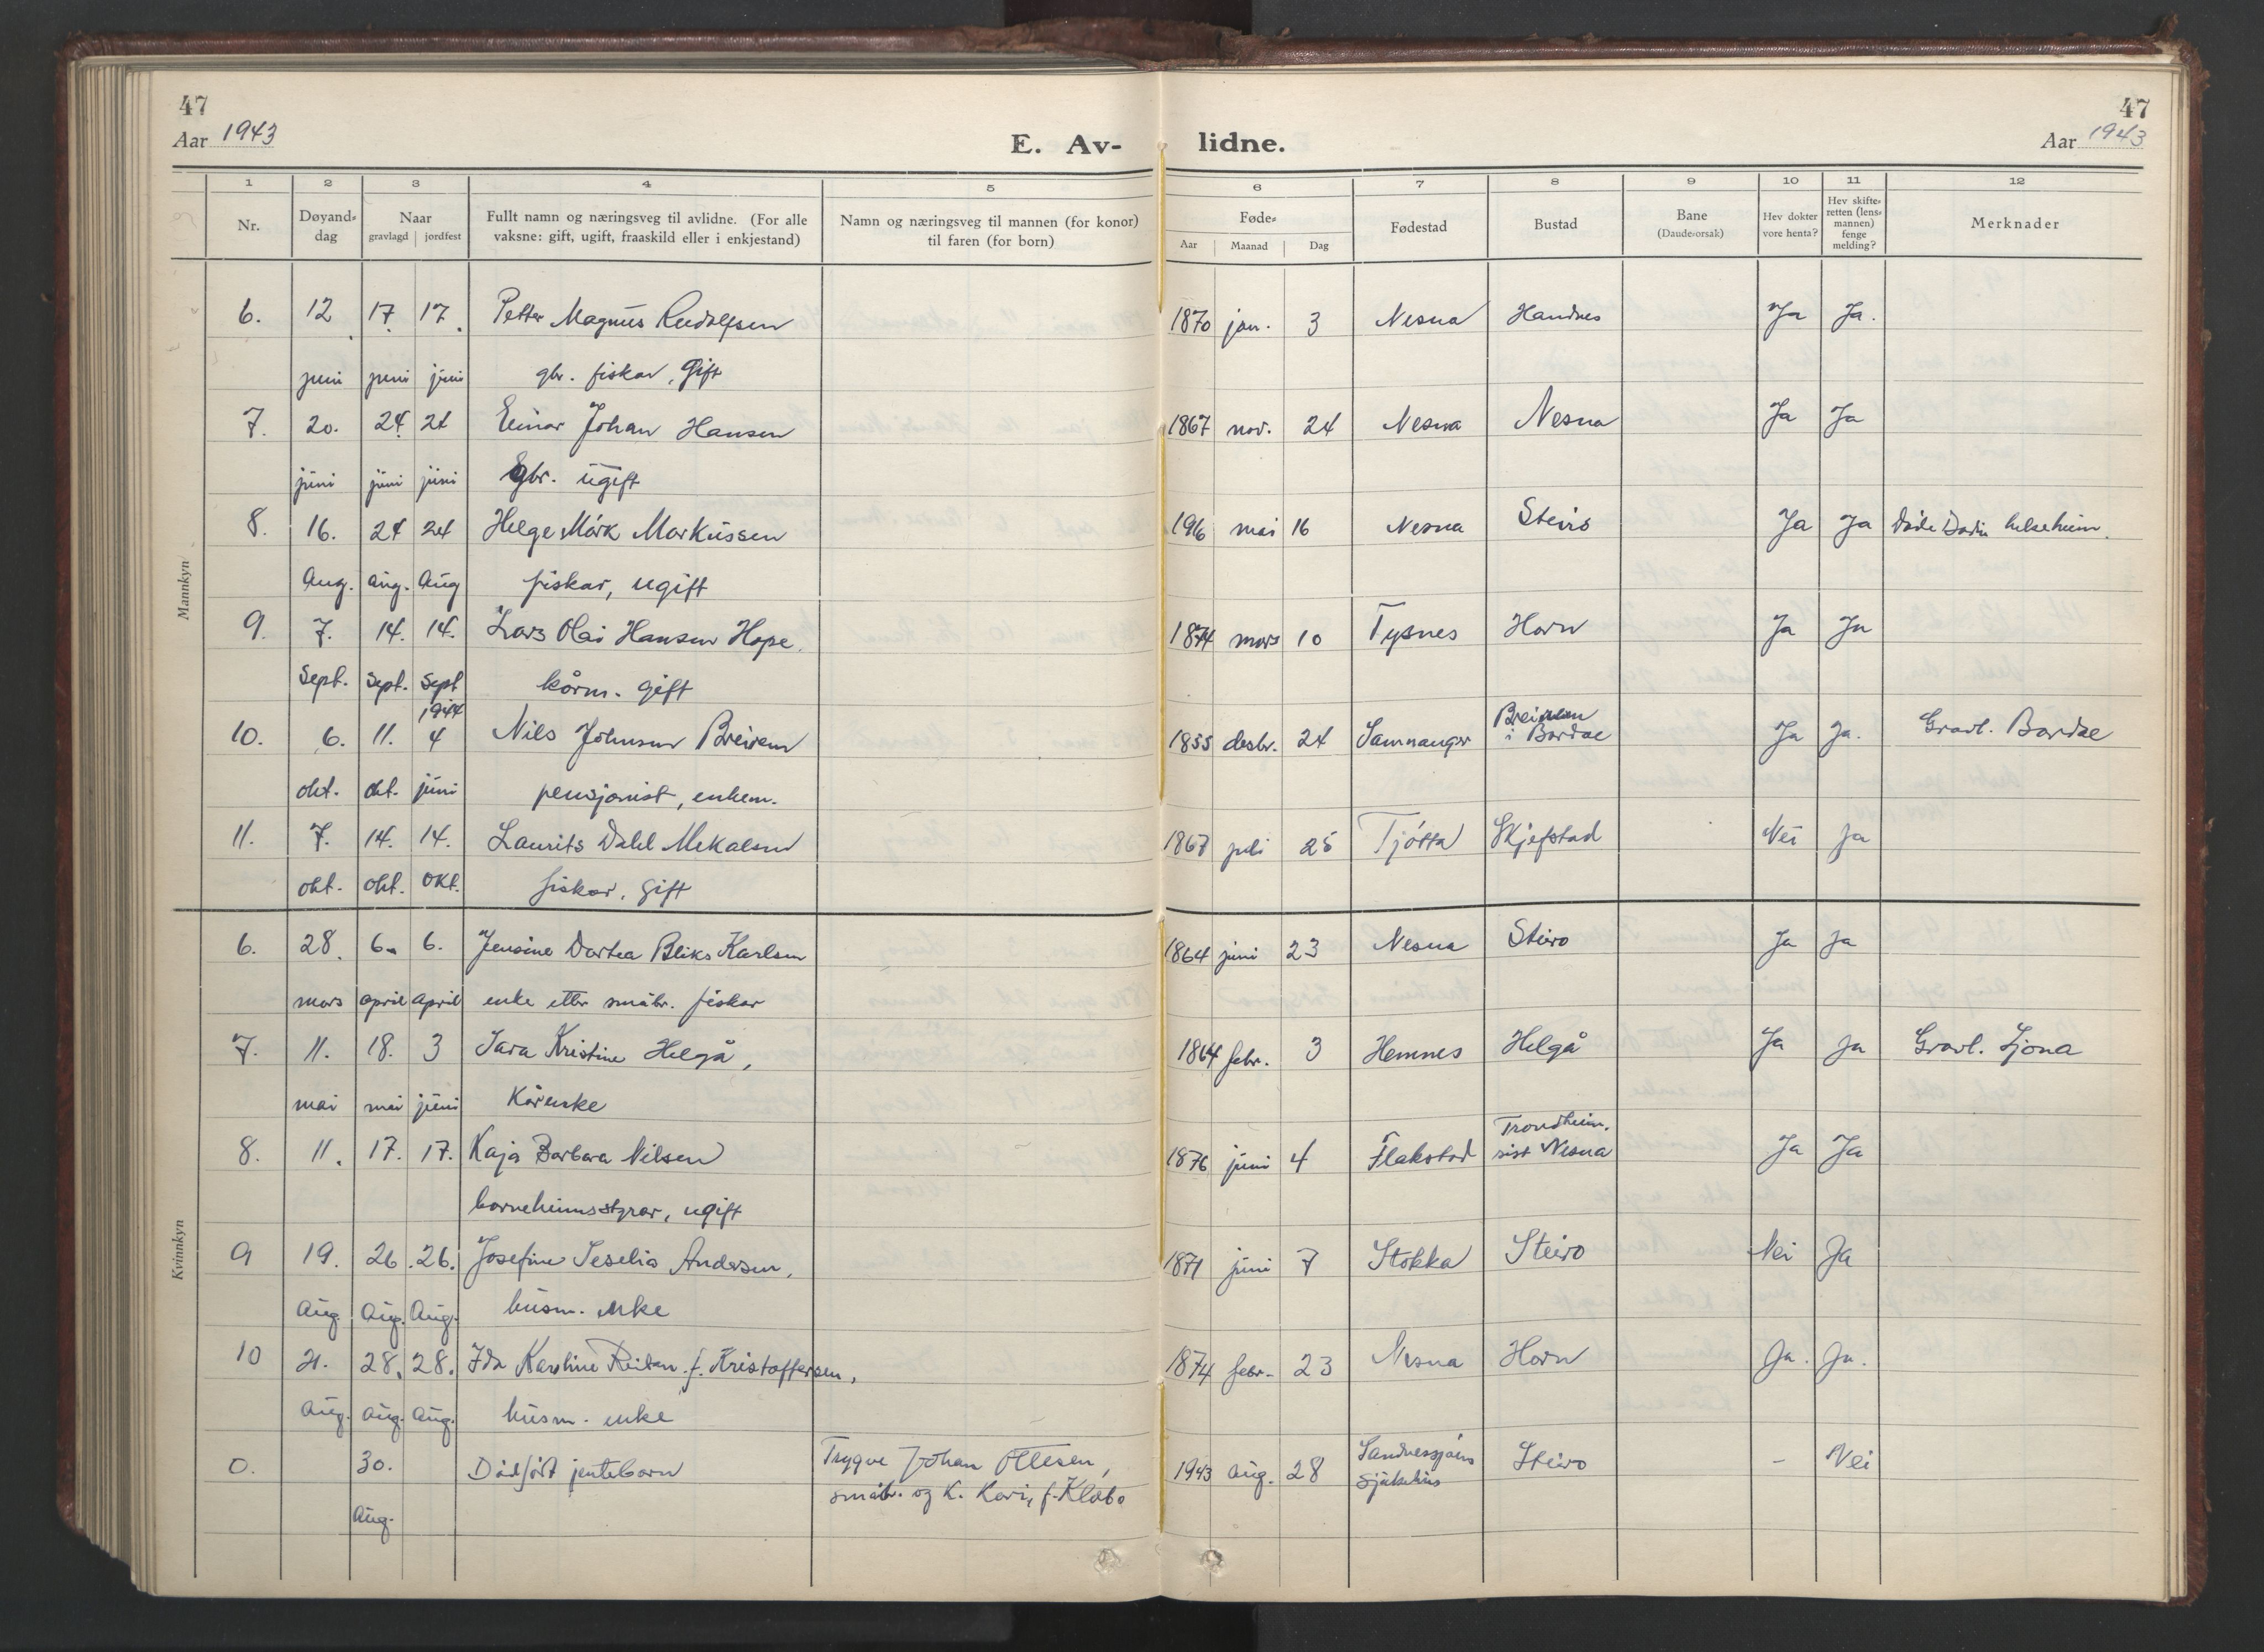 47
Aar 1943
E. Av-
lidne.
47
Aar 1943
1 2 3 4 5 6 7 8 9 10 11 12
Nr. Døyand-dag Naar gravlagd jordfest Fullt namn og næringsveg til avlidne. (For alle vaksne: gift, ugift, fraaskild eller i enkjestand) Namn og næringsveg til mannen (for konor) til faren (for born) Føde- Aar Maanad Dag Fødestad Bustad Bane (Daude-orsak) Hev dokter vore henta? Hev skifte-retten (lens-mannen) fenge melding? Merknader
Mannkyn
6. 12 17. 17. Petter Magnus Rudolfsen 1870 jan. 3 Nesna Handnes Ja Ja.
juni juni juni gbr. fiskar, gift
7. 20. 24. 24 Einar Johan Hansen 1867 nov. 24 Nesna Nesna Ja Ja
juni juni juni gbr. ugift
8. 16. 24 24 Helge Mørk Markussen 1916 mai 16 Nesna Steiro Ja Ja døde Bodin helseheim.
Aug. aug. Aug fiskar, ugift
9. 7. 14. 14. Lars Olai Hansen Hope. 1874 mars 10 Tysnes Horn Ja Ja
Sept. Sept. Sept kårm. gift
10. 6. 11. 1944 4 Nils Johnsen Breirem 1855 desbr. 24 Samnanger Breirem i Bardae Ja Ja. Gravl. Bardae
okt. okt. juni pensjonist, enkem.
11. 7. 14. 14. Laurits Dahl Mikalsen 1867 juli 25 Tjøtta Skjefstad Nei Ja
okt. okt. okt. fiskar, gift
Kvinnkyn
6. 28. 6. 6. Jensine Dortea Bliks Karlsen 1864 juni 23 Nesna Steiro Ja Ja
mars april april enke etter småbr. fiskar
7. 11. 18. 3 Sara Kristine Helgå, 1864 febr. 3 Hemnes Helgå Ja Ja Gravl. Sjona
mai mai juni Kårenke
8. 11. 17. 17. Kaja Barbara Nilsen 1876 juni 4 Flakstad Trondheim. sist Nesna Ja Ja
borneheimsstyrar, ugift
9 19. 26. 26. Josefine Seselia Andersen, 1871 juni 7 Stokka Steiro Nei Ja
Aug. Aug. Aug. husm. enke
10 21. 28. 28. Ida Karoline Reitan f. Kristoffersen, 1874 febr. 23 Nesna Horn Ja. Ja.
Aug. aug. aug. husm. enke
0. 30. Dødfødt jentebarn Trygve Johan Ottesen, 1943 Aug. 28 Sandnessjøen Steiro - Nei
Aug. småbr. og K. Kari, f. Klabo Sjukehus